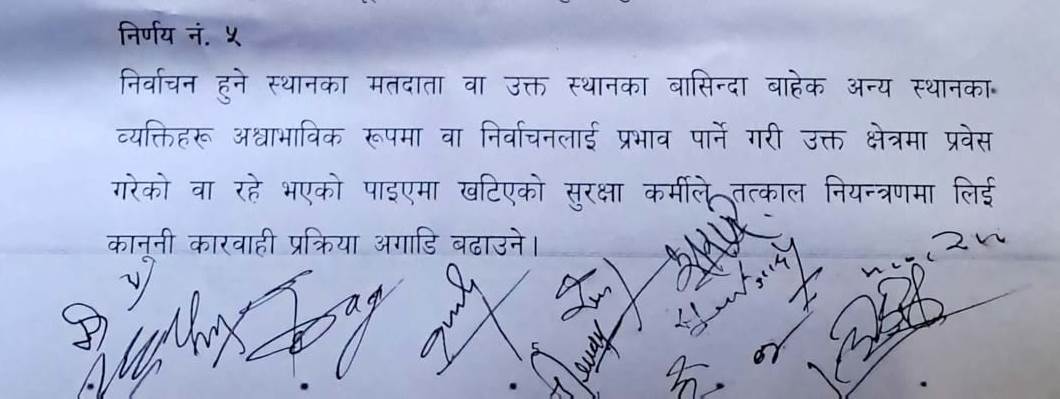 निर्णय नं. ५
निर्वाचन हुने स्थानका मतदाता वा उक्त स्थानका बासिन्दा बाहेक अन्य स्थानका
व्यक्तिहरू अश्वाभाविक रूपमा वा निर्वाचनलाई प्रभाव पार्ने गरी उक्त क्षेत्रमा प्रवेस
गरेको वा रहे भएको पाइएमा खटिएको सुरक्षा कर्मीले तत्काल नियन्त्रणमा लिई
कानूनी कारवाही प्रक्रिया अगाडि बढाउने।